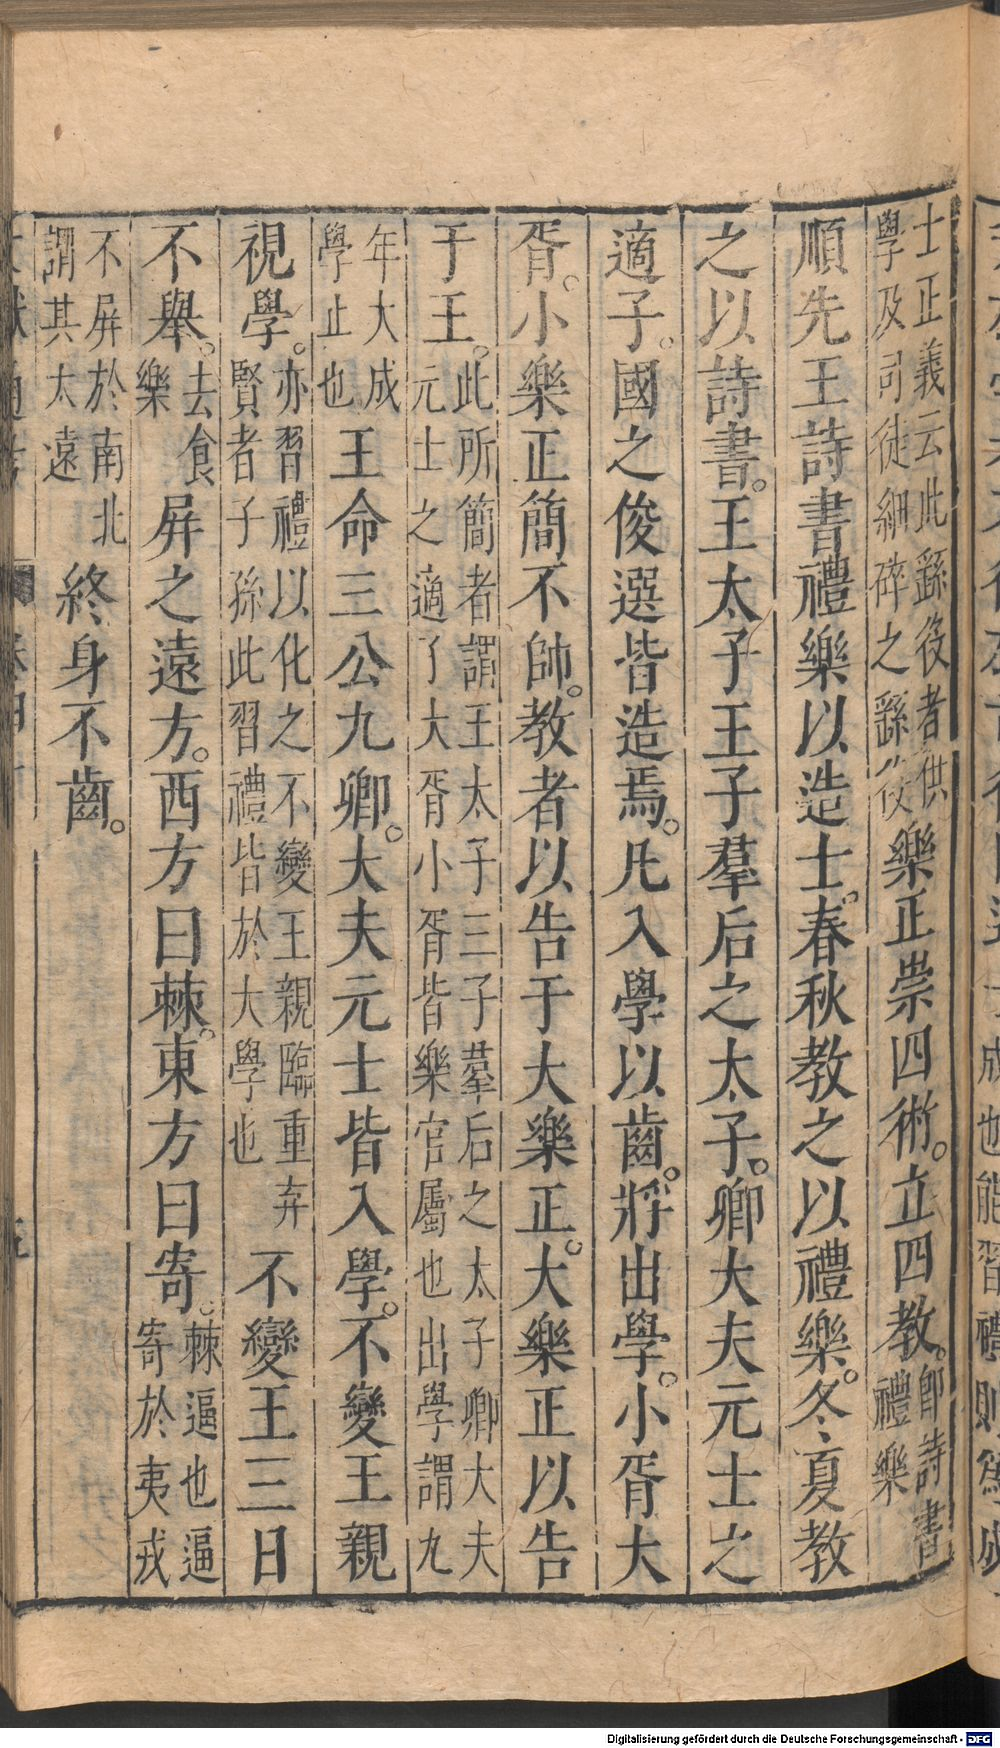 士正義云此繇役者供學及司徒細碎之繇役樂正崇四術。立四教。即詩書禮樂
順先王詩書禮樂以造士。春秋教之以禮樂。冬夏教
之以詩書。王太子王子羣后之太子。卿大夫元士之
適子。國之俊選皆造焉。凡入學以齒。將出學。小胥大
胥。小樂正簡不帥。教者以告于大樂正。大樂正以告
于王。此所簡者謂王太子三子羣后之太子卿大夫元士之適了大胥小胥皆樂官屬也出學謂九
年大成學止也王命三公九卿。大夫元士皆入學。不變王親
視學。亦習禮以化之不變王親臨重弃賢者子孫此習禮皆於大學也不變王三日
不舉。去食樂屏之遠方。西方曰棘。東方曰寄。棘逼也逼寄於夷戎
不屏於南北謂其太遠終身不齒。
Digitalisierung gefördert durch die Deutsche Forschungsgemeinschaft - DFG